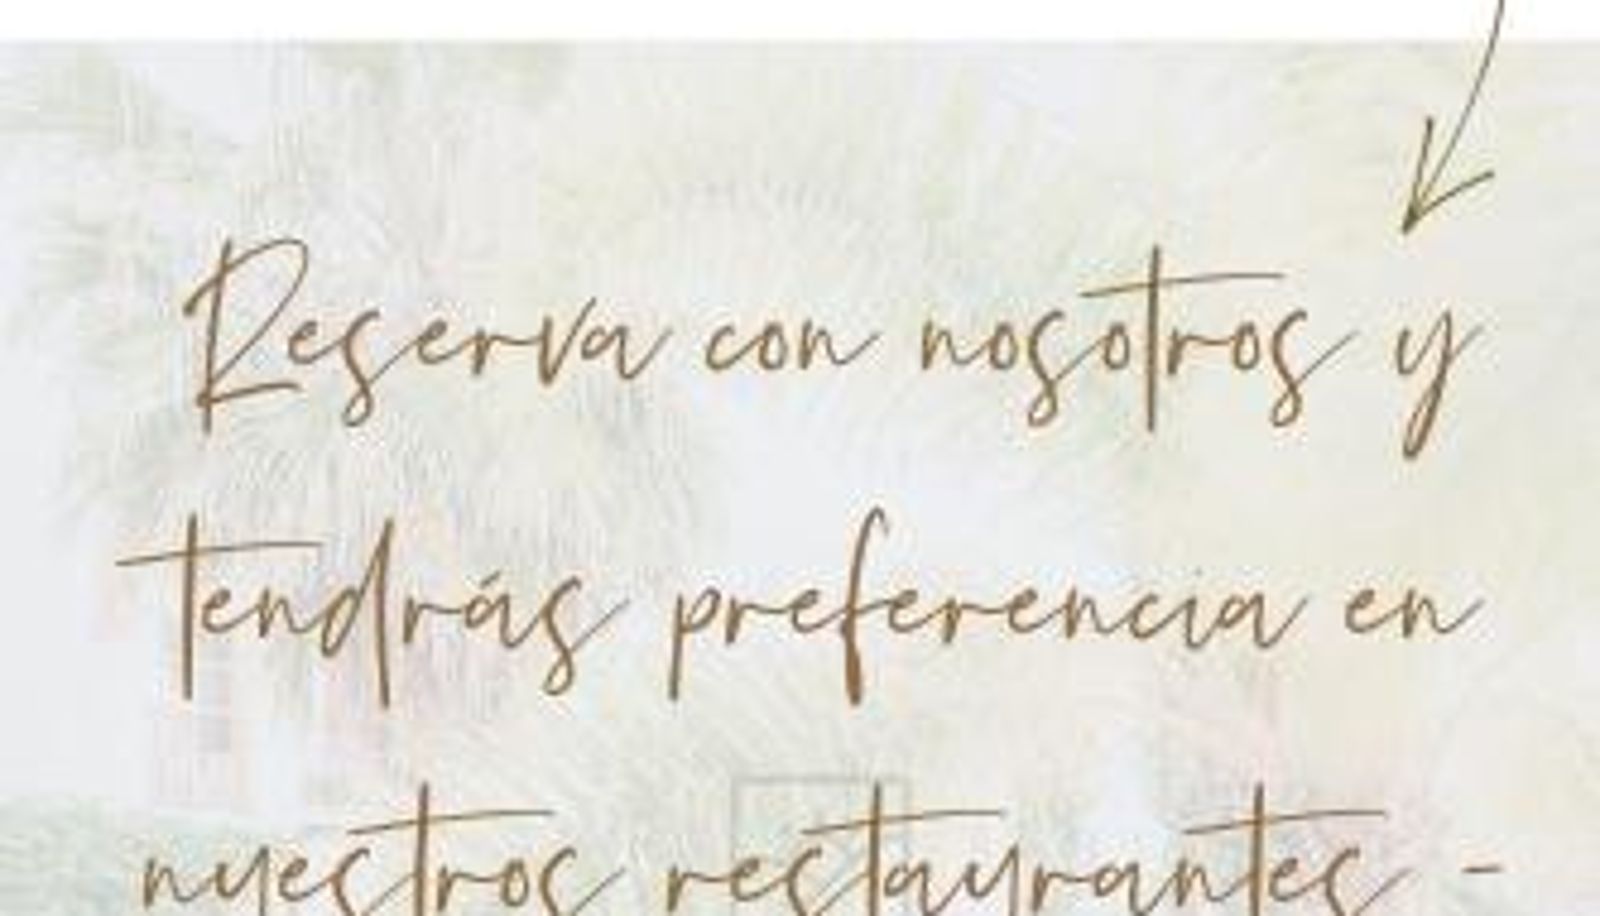 Reserva con nosotros y
tendrás preferencia en
nuestros restaurantes -